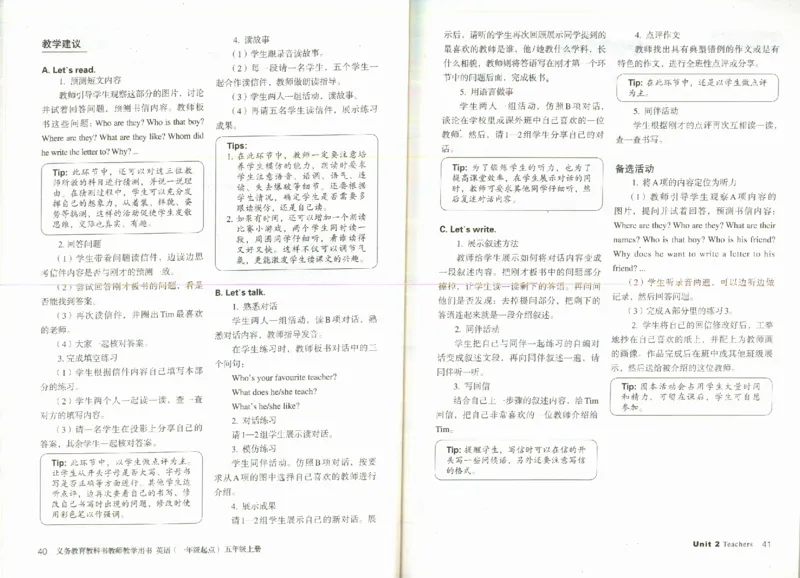 教学建议
A. Let's read.
1. 预测短文内容
教师引导学生观察这部分的图片，讨论
并试着回答问题，预测书信内容。教师板
书这些问题：Who are they? Who is that boy?
Where are they? What are they like? Whom did
he write the letter to? Why? ...
Tip: 此环节中，还可以对这三位教
师所教的科目进行猜测，并说一说理
由。在猜测过程中，学生可以充分发
挥自己的想象力，从着装、样貌、姿
势等猜测，这样的活动促使学生发散
思维，交际也真实、有趣。
2. 回答问题
（1）学生带着问题读信件，边读边思
考信件内容是否与刚才的预测一致。
（2）尝试回答刚才板书的问题，看是
否能找到答案。
（3）再次读信件，并圈出 Tim 最喜欢
的老师。
（4）大家一起核对答案。
3. 完成填空练习
（1）学生根据信件内容自己填写本部
分的练习。
（2）学生两个人一起读一读，查一查
对方的填写内容。
（3）请一名学生在投影上分享自己的
答案，其余学生一起核对答案。
Tip: 此环节中，以学生做点评为主。
让学生从开头字母是否大写、字母书
写是否正确等方面进行。其他学生边
听点评，边再次查看自己的书写，修
改自己书写时出现的问题，修改时使
用彩色笔以作强调。
4. 读故事
（1）学生跟录音读故事。
（2）每一段请一名学生，五个学生一
起合作读信件，教师做朗读指导。
（3）学生两人一组活动，读故事。
（4）再请五名学生读信件，展示练习
成果。
Tips:
1. 在此环节中，教师一定要注意培
养学生模仿的能力，跟读时要求
学生注意语音、语调、语气、连
读、失去爆破等细节。还要根据
学生情况，确定学生是否需要多
跟读模仿，还是自己读。
2. 如果有时间，还可以增加一个朗读
比赛小游戏，两个学生同时读一
段，周围同学仔细听，看谁读得
又好又快。这样不仅可以调节气
氛，更能激发学生读课文的兴趣。
B. Let's talk.
1. 熟悉对话
学生两人一组活动，读 B 项对话，熟
悉对话内容，教师指导发音。
在学生练习时，教师板书对话中的三
个问句：
Who's your favourite teacher?
What does he/she teach?
What's he/she like?
2. 对话练习
请1—2组学生展示读对话。
3. 模仿练习
学生同伴活动。仿照 B 项对话，按要
求从 A 项的图中选择自己喜欢的教师进行
介绍。
4. 展示成果
请1—2组学生展示自己的新对话。展
40 义务教育教科书教师教学用书 英语（一年级起点）五年级上册
示后，请听的学生再次回顾展示同学提到的
最喜欢的教师是谁，他/她教什么学科，长
什么相貌，教师则将答语写在刚才第一个环
节中的问题后面，完成板书。
5. 用语言做事
学生两人一组活动，仿照 B 项对话，
谈论在学校里或课外班中自己喜欢的一位
教师。然后，请1—2组学生分享自己的对
话。
Tip: 为了锻炼学生的听力，也为了
提高课堂效率，在学生展示对话的同
时，教师可要求其他同学仔细听，然
后复述对话内容。
C. Let's write.
1. 展示叙述方法
教师给学生展示如何将对话内容变成
一段叙述内容。把刚才板书中的问题部分
擦掉，让学生读一读剩下的答语。再问问
他们是否发现：去掉提问部分，把剩下的
答语连起来就是一段介绍叙述。
2. 同伴活动
学生把自己与同伴一起练习的自编对
话变成叙述文段，再向同伴叙述一遍，请
同伴听一听。
3. 写回信
结合自己上一步骤的叙述内容，给 Tim
回信，把自己非常喜欢的一位教师介绍给
Tim。
Tip: 提醒学生，写信时可以在信的开
头写一些问候语，另外还要注意写信
的格式。
4. 点评作文
教师找出具有典型错例的作文或是有
特色的作文，进行全班性点评或分享。
Tip: 在此环节中，还是以学生做点评
为主。
5. 同伴活动
学生根据刚才的点评再次互相读一读，
查一查书写。
备选活动
1. 将 A 项的内容定位为听力
（1）教师引导学生观察 A 项内容的
图片，提问并试着回答，预测书信内容：
Where are they? Who are they? What are their
names? Who is that boy? Who is his friend?
Why does he want to write a letter to his
friend? ...
（2）学生听录音两遍，可以边听边做
记录，然后回答问题。
（3）完成 A 部分里的练习3。
2. 学生将自己的回信修改好后，工整
地抄在自己喜欢的纸上，并配上为教师画
的画像。作品完成后在班中或其他班级展
示，然后送给被介绍的这位教师。
Tip: 因本活动会占用学生大量时间
和精力，可放在课后，学生可自愿
参加。
Unit 2 Teachers 41